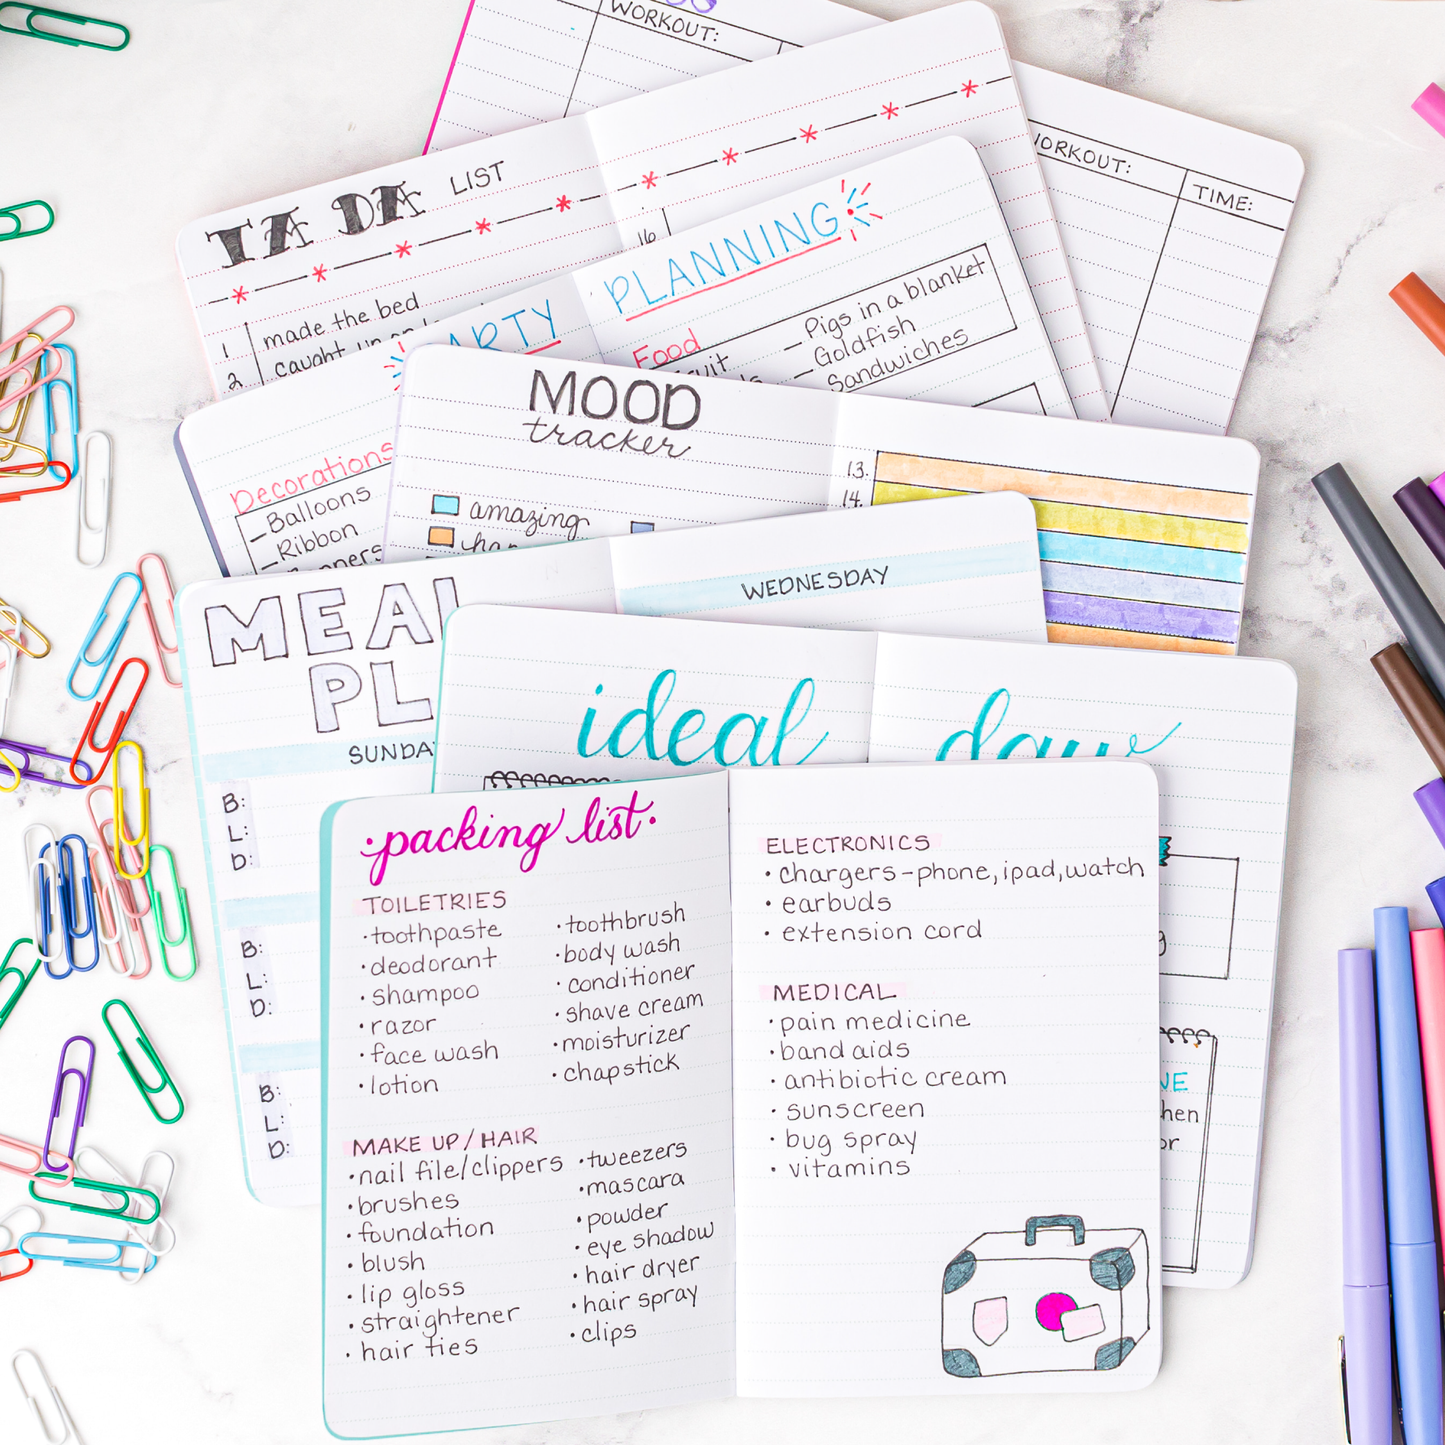 WORKOUT:
WORKOUT:
TIME:
TA DA LIST
1 made the bed
2 caught up on
16
PARTY PLANNING
Food
Pigs in a blanket
Goldfish
Sandwiches
Decorations
- Balloons
- Ribbon
MOOD
tracker
amazing
13.
14.
MEAL
PL
WEDNESDAY
SUNDAY
B:
L:
D:
B:
L:
D:
B:
L:
D:
ideal day
hen
or
·packing list·
TOILETRIES
·toothpaste
·deodorant
·shampoo
·razor
·face wash
·lotion
·toothbrush
·body wash
·conditioner
·shave cream
·moisturizer
·chapstick
MAKE UP/HAIR
·nail file/clippers
·brushes
·foundation
·blush
·lip gloss
·straightener
·hair ties
·tweezers
·mascara
·powder
·eye shadow
·hair dryer
·hair spray
·clips
ELECTRONICS
·chargers-phone, ipad, watch
·earbuds
·extension cord
MEDICAL
·pain medicine
·band aids
·antibiotic cream
·sunscreen
·bug spray
·vitamins